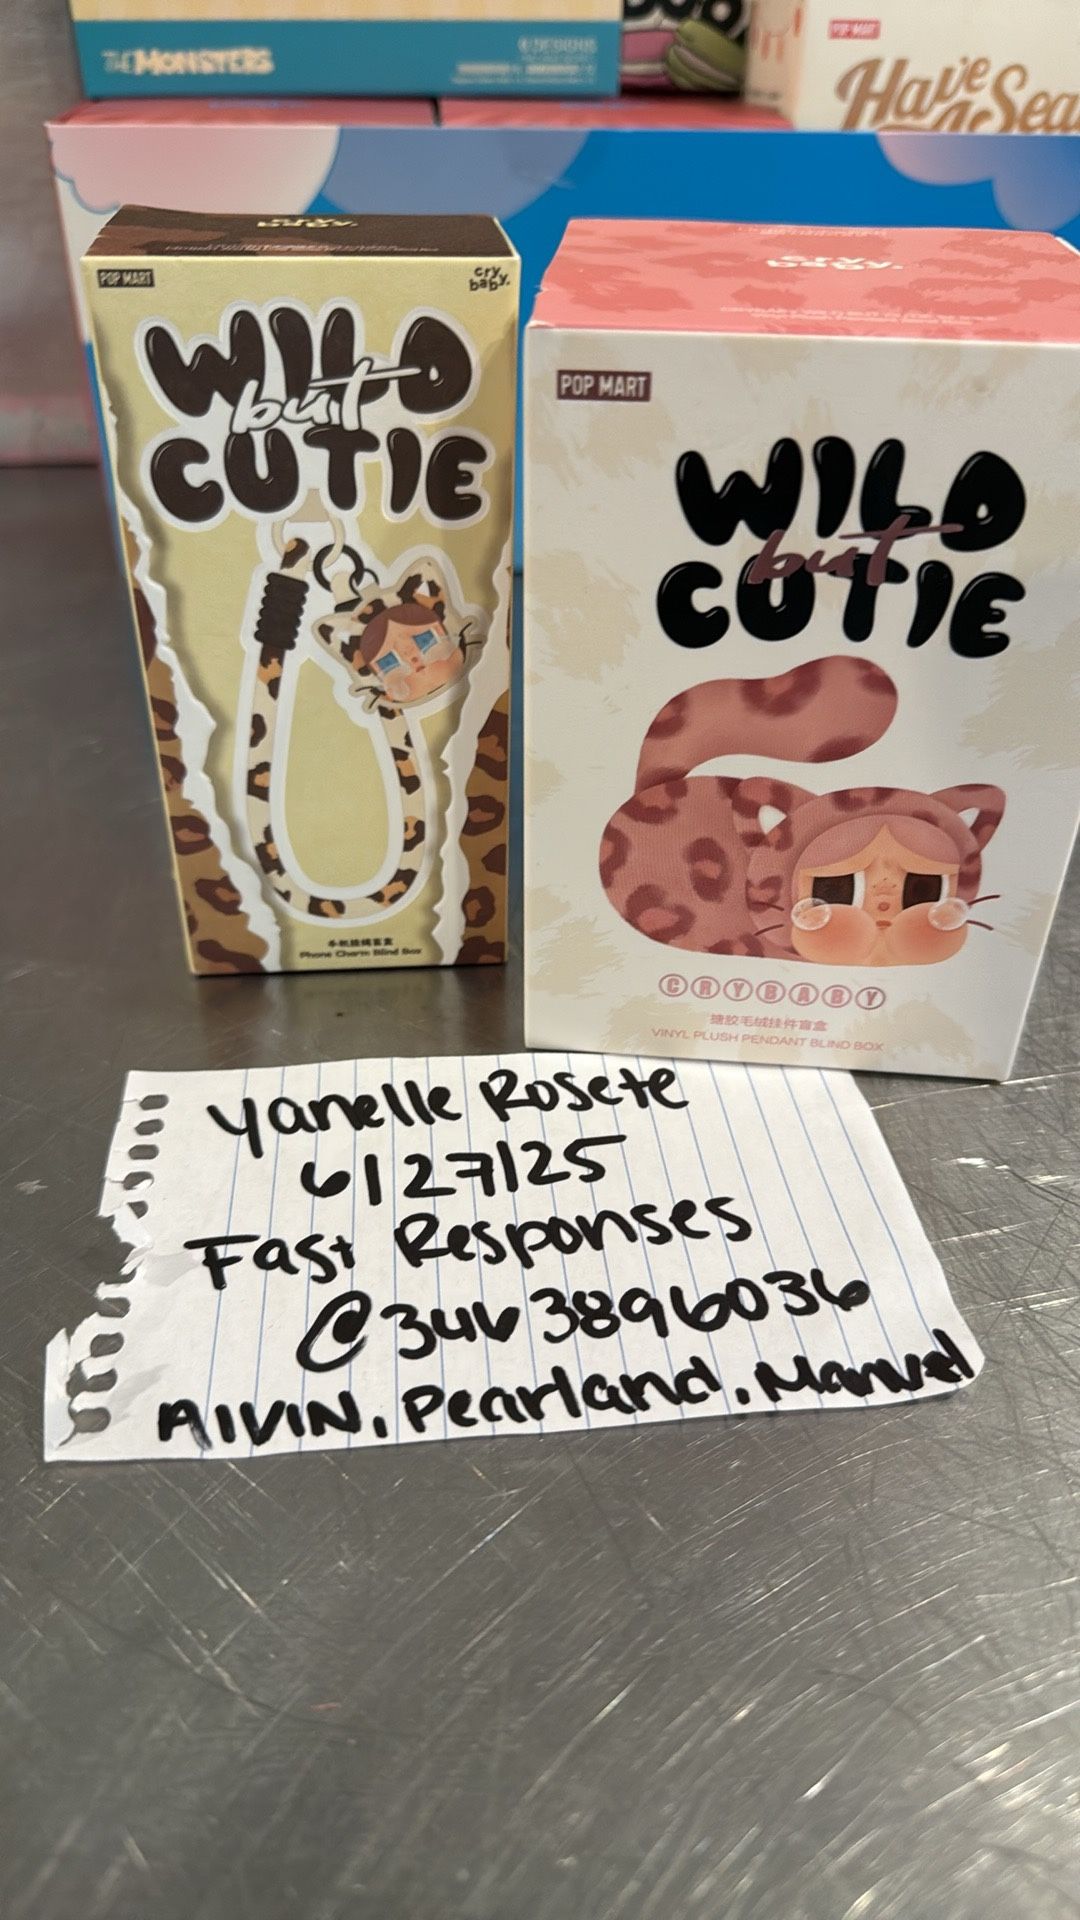 THE MONSTERS
POP MART
Have A Sea
cry baby.
POP MART
cry baby.
WILD
but
CUTIE
手机挂绳盲盒
Phone Charm Blind Box
cry baby.
POP MART
WILD
but
CUTIE
CRYBABY
搪胶毛绒挂件盲盒
VINYL PLUSH PENDANT BLIND BOX
Yanelle Rosete
6/27/25
Fast Responses
@3463896036
AlVIN, Pearland, Manvel